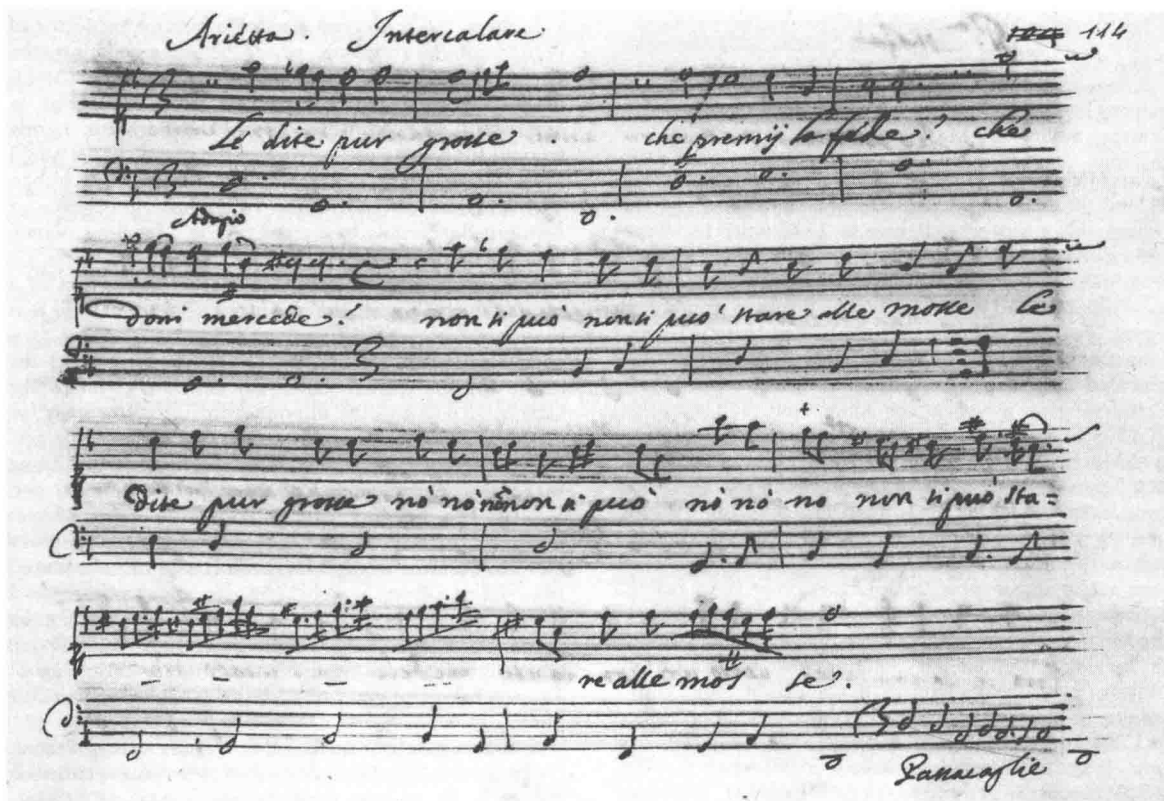 Arietta. Intercalare. 104 114
Le dite pur grosse. che premij la fede? che
Adagio
doni mercede? non si può non si può stare alle mosse le
dite pur grosse nò nò nò non si può nò nò no non si può sta=
re alle mos se.
Passacaglie